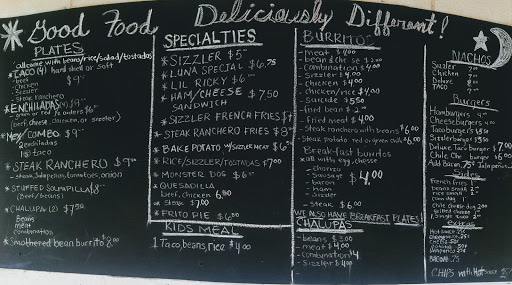 Good Food Deliciously Different!
PLATES
all come with beans/rice/salad/tostadas
*TACO (4) hard shell or soft
- beef $9
- chicken
- sizzler
- steak ranchero
*ENCHILADAS (4) $9
(beef, cheese, chicken, or sizzler)
*Mex/COMBO $9
2 enchiladas
1 taco
*STEAK RANCHERO $9
- steak, jalapenos, tomatoes, onion
*STUFFED SOPAPILLA $8
(Beef/beans)
*CHALUPA (2) $7.50
beans
meat
combination
*Smothered bean burrito 8.00
SPECIALTIES
*SIZZLER $5
*LUNA SPECIAL $6.75
*LIL RICKY $6
*HAM/CHEESE $7.50
SANDWICH
*SIZZLER FRENCH FRIES
*STEAK RANCHERO FRIES $8
*BAKE POTATO w/SIZZLER MEAT $6
*RICE/SIZZLER/TOSTADAS $7.00
*MONSTER DOG $6
*QUESADILLA
beef, chicken 6.00
*Steak $7.00
*FRITO PIE $6.00
KIDS MEAL
1 Taco, beans, rice $4.00
BURRITOS
- meat $4.00
- bean & cheese $2.00
- combination $4.00
- Sizzler $4.00
- chicken $4.00
- chicken/rice $4.00
- Suicide $5.50
- fried bean $2.00
- Fried meat $4.00
- Steak ranchero with beans $6.00
- Steak potato red or green chile $6.00
Breakfast burritos
*all with egg, cheese
- chorizo
- Sausage $4.00
- bacon
- ham
- Sizzler
- steak $6.00
WE ALSO HAVE BREAKFAST PLATES!
CHALUPAS
- beans $3.00
- meat $4.00
- combination $4
- Sizzler $4.00
NACHOS
Sizzler
Chicken
Deluxe
TACO
Burgers
Hamburgers
Cheeseburgers
Taco burgers
Sizzler burgers
Deluxe Taco Burgers $7.00
Chile Chz burger $6.00
Add Bacon, Jalapenos
Sides
French fries
beans small
rice small
corn dog
chile cheese dog
grilled cheese
Hot sauce
Cheese
BACON .75
CHIPS with Hot sauce